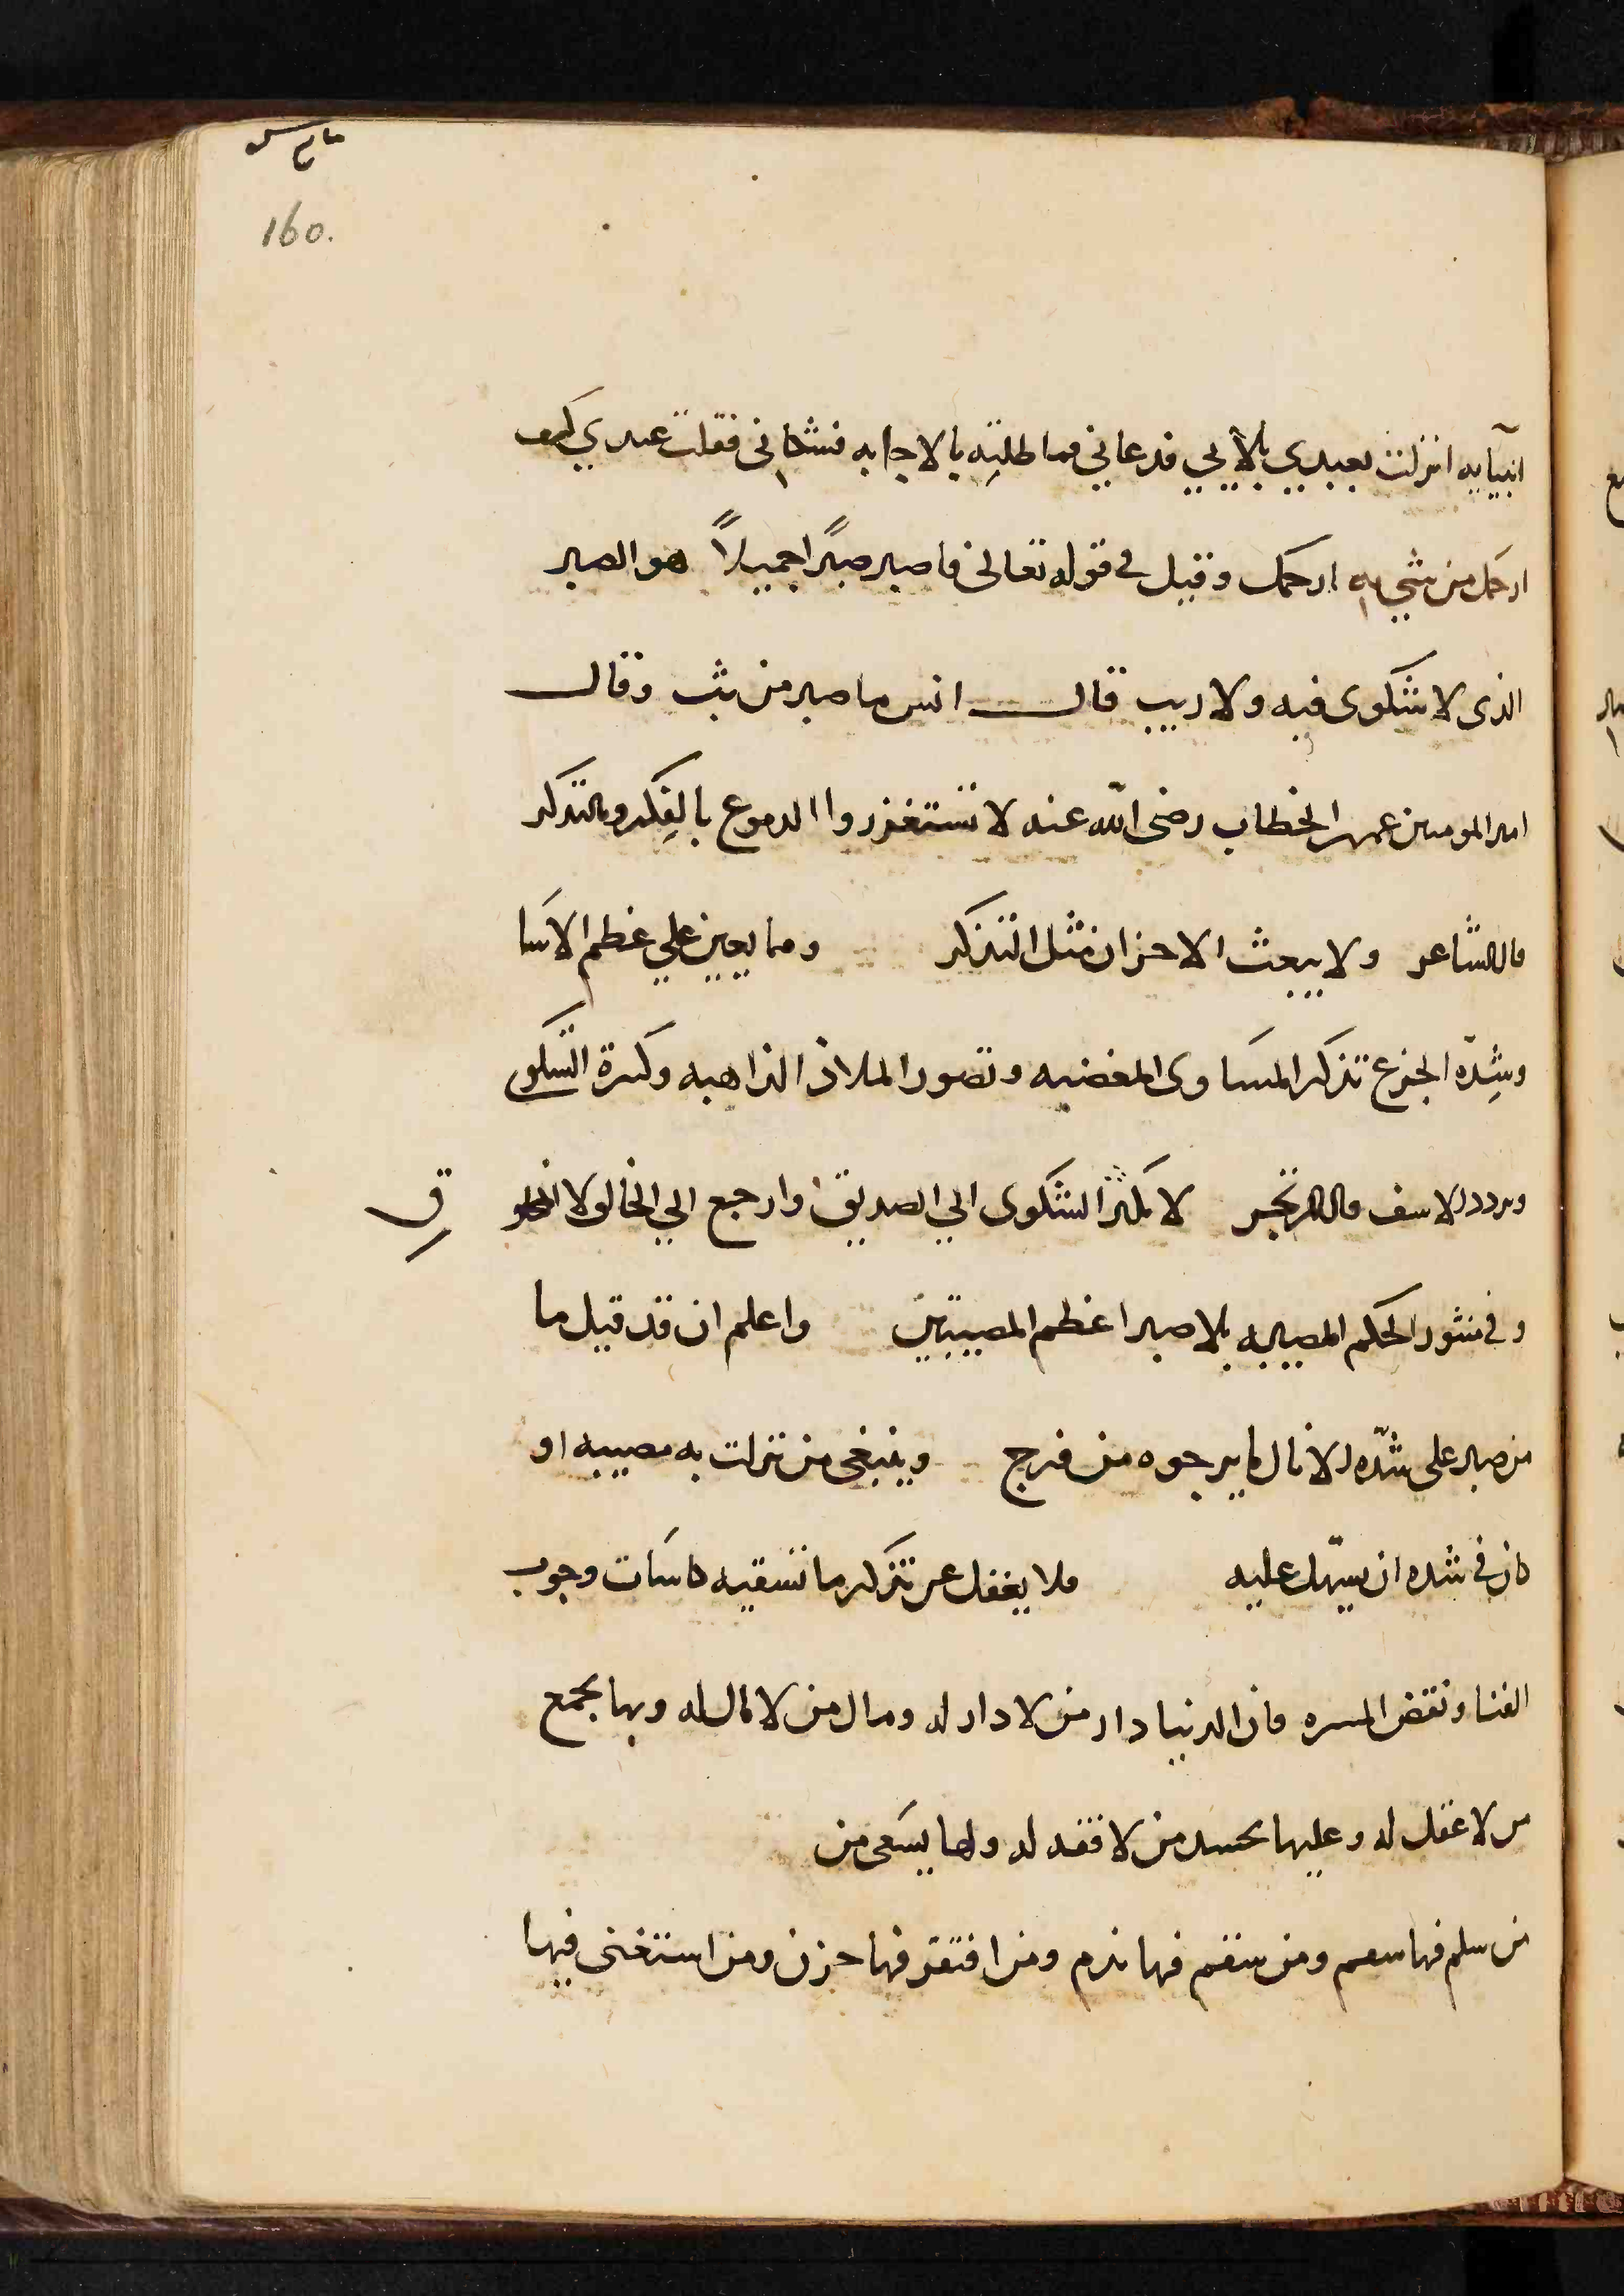 160.
انبيآيه انزلت بعبدي بلآيي فدعاني فماطلته بالاجابه فشكاني فقلت عبدي كيف
ارحمك من شي به ارحمك وقيل في قوله تعالى فاصبر صبرًا جميلاً هو الصبر
الذى لا شكوى فيه ولا ريب قال انس ما صبر من بث وقال
امير المومنين عمر الخطاب رضى الله عنه لا تستغزروا الدموع بالفكر وبالتذكر
قال الشاعر ولا يبعث الاحزان مثل التذكر ومما يعين علي عظم الاسا
وشدّه الجزع تذكر المساوى المغضبه وتصور الملاذ الذاهبه وكثرة الشكوى
وتردد الاسف قال لا تكثر الشكوى الي الصديق وارجع الي الخالق لا المخلو
ق
وفى منثور الحكم المصيبه بلا صبر اعظم المصيبتين واعلم ان قد قيل ما
من صبر على شدّه الا نال ما يرجوه من فرج وينبغى من نزلت به مصيبه او
كان فى شده ان يسهّل عليه فلا يغفل عن تذكر ما تسقيه كاسات وجوب
الفنا ونقض المسره فان الدنيا دار من لا دار له ومال من لا مال له وبها يجمع
من لا عقل له وعليها يحسد من لا فقه له ولها يسعى من
من سلم فيها سقم ومن سقم فيها ندم ومن افتقر فيها حزن ومن استغنى فيها